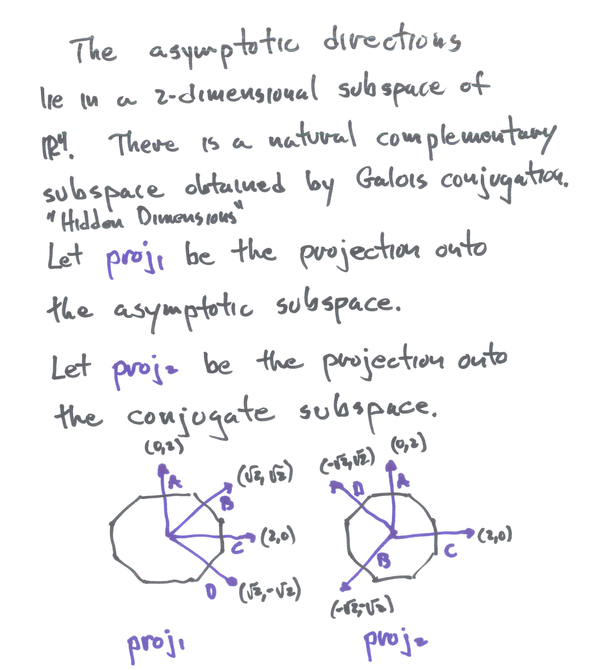 The asymptotic directions
lie in a 2-dimensional subspace of
ℝ⁴. There is a natural complementary
subspace obtained by Galois conjugation.
"Hidden Dimensions"
Let proj₁ be the projection onto
the asymptotic subspace.
Let proj₂ be the projection onto
the conjugate subspace.
(0,2)
A
(√2, √2)
B
C
(2,0)
D
(√2,-√2)
proj₁
(-√2,√2)
D
(0,2)
A
C
(2,0)
B
(-√2,-√2)
proj₂